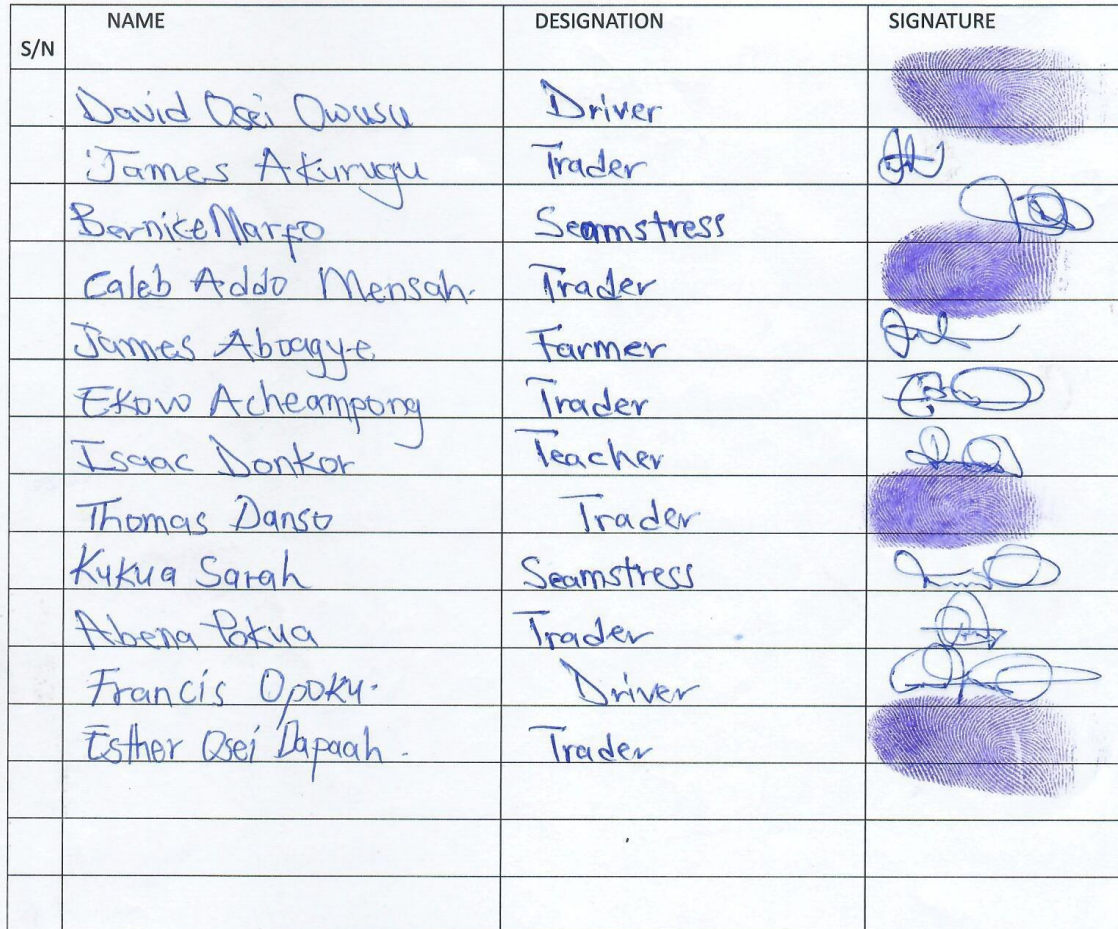 S/N NAME DESIGNATION SIGNATURE
David Osei Owusu Driver
James Akurugu Trader
Bernice Marfo Seamstress
Caleb Addo Mensah. Trader
James Aboagye Farmer
Ekovo Acheampong Trader
Isaac Donkor Teacher
Thomas Danso Trader
Kukua Sarah Seamstress
Abena Pokua Trader
Francis Opoku. Driver
Esther Osei Dapaah. Trader